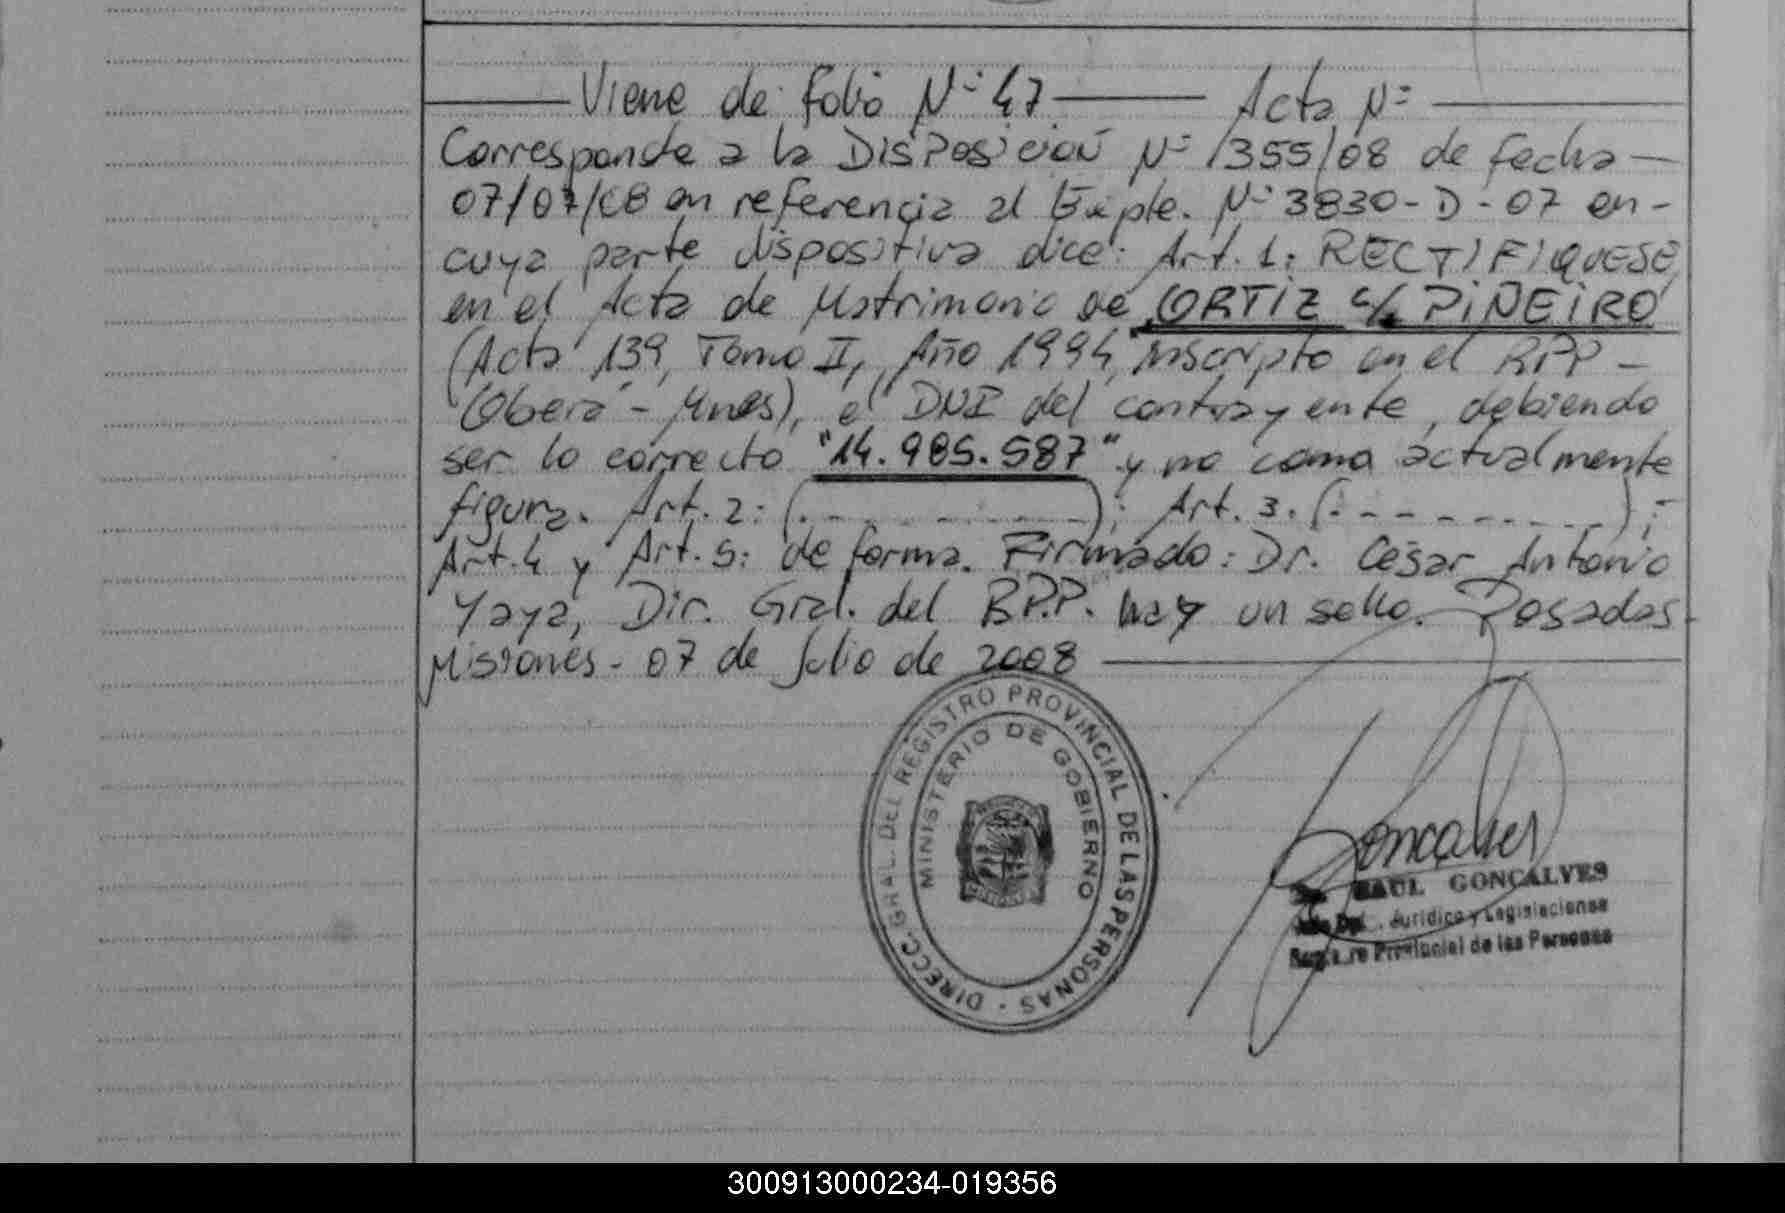 Viene de folio Nº 47 Acta Nº
Corresponde a la Disposición Nº 1355/08 de fecha
07/07/08 en referencia al Expte. Nº 3830-D-07 en
cuya parte dispositiva dice: Art. 1: RECTIFIQUESE
en el Acta de Matrimonio de ORTIZ c/ PIÑEIRO
(Acta 139, Tomo II, Año 1994, inscripto en el RPP -
Oberá - Mnes), el DNI del contrayente, debiendo
ser lo correcto "14.985.587" y no como actualmente
figura. Art. 2: (.- - - - - - - - - -); Art. 3. (.- - - - - - - -);
Art. 4 y Art. 5: de forma. Firmado: Dr. César Antonio
Yaya, Dir. Gral. del RPP. hay un sello. Posadas
Misiones - 07 de Julio de 2008
DIRECC. GRAL. DEL REGISTRO PROVINCIAL DE LAS PERSONAS
MINISTERIO DE GOBIERNO
Goncalves
RAUL GONÇALVES
Jurídico y Legislaciones
Provincial de las Personas
300913000234-019356